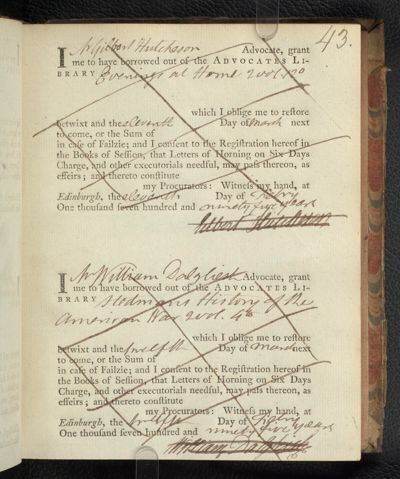 43.
I Mr Gilbert Hutcheson Advocate, grant
me to have borrowed out of the ADVOCATES LI-
BRARY Evenings at Home 2 vol.
which I oblige me to reſtore
betwixt and the eleventh Day of March next
to come, or the Sum of
in caſe of Failzie; and I conſent to the Regiſtration hereof in
the Books of Seſſion, that Letters of Horning on Six Days
Charge, and other executorials needful, may paſs thereon, as
effeirs; and thereto conſtitute
my Procurators: Witneſs my hand, at
Edinburgh, the eleventh Day of Febry
One thouſand ſeven hundred and ninety five years
Gilbert Hutcheson
I Mr William Dalgliesh Advocate, grant
me to have borrowed out of the ADVOCATES LI-
BRARY Stedmans History of the
American War 2 vol. 4to
which I oblige me to reſtore
betwixt and the twelfth Day of March next
to come, or the Sum of
in caſe of Failzie; and I conſent to the Regiſtration hereof in
the Books of Seſſion, that Letters of Horning on Six Days
Charge, and other executorials needful, may paſs thereon, as
effeirs; and thereto conſtitute
my Procurators: Witneſs my hand, at
Edinburgh, the twelfth Day of Febry
One thouſand ſeven hundred and ninety five years
William Dalgliesh